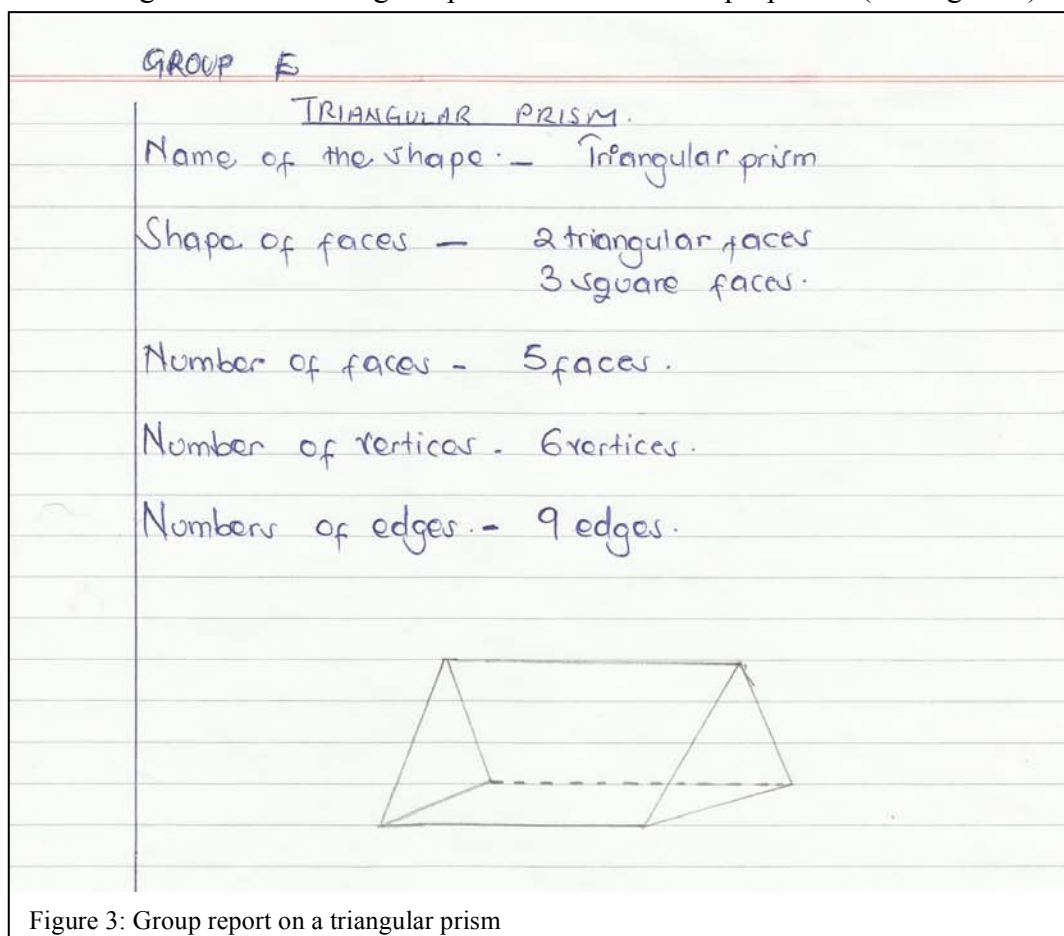 GROUP E
TRIANGULAR PRISM.
Name of the shape. – Triangular prism
Shape of faces – 2 triangular faces
3 square faces.
Number of faces - 5 faces.
Number of vertices - 6 vertices.
Numbers of edges. - 9 edges.
Figure 3: Group report on a triangular prism